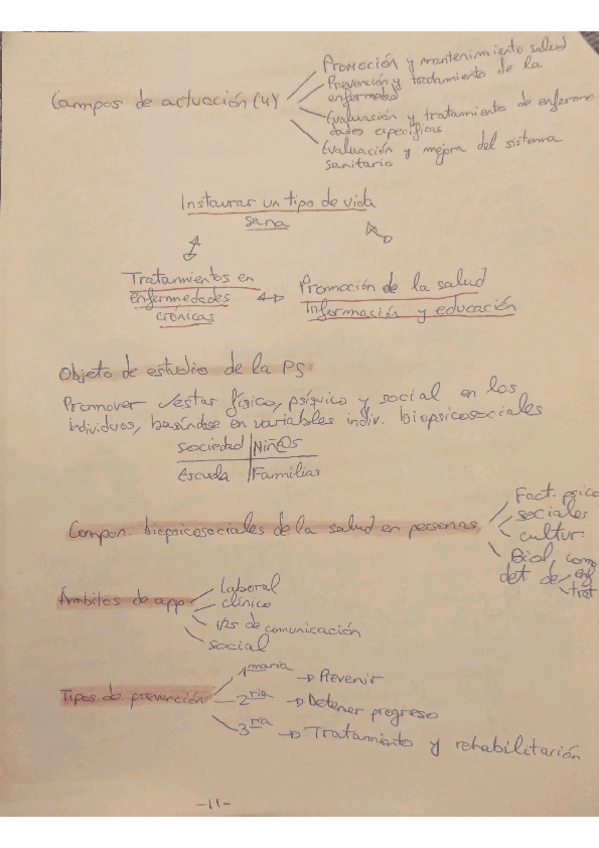 Promoción y mantenimiento salud
Prevención y tratamiento de la
enfermedad
Campos de actuación (4)
Evaluación y tratamiento de enferme
dades específicas
Evaluación y mejora del sistema
sanitario
Instaurar un tipo de vida
sana
Tratamientos en
enfermedades
crónicas
Promoción de la salud
Información y educación
Objeto de estudio de la PS
Promover estar físico, psíquico y social en los
individuos, basándose en variables indiv. biopsicosociales
Sociedad | Niñ@s
Escuela | Familias
Compon. biopsicosociales de la salud en personas
Fact. psico
sociales
cultur.
Biol, como
det de enf
trat
Ámbitos de app
Laboral
clínico
de comunicación
social
Tipos de prevención
1maria → Prevenir
2ria → Detener progreso
3ria → Tratamiento y rehabilitación
-11-